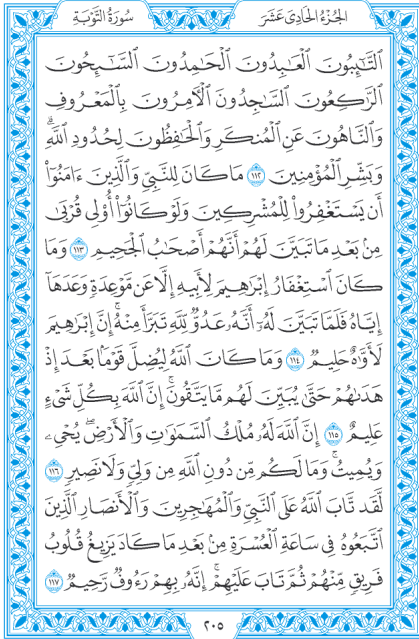 الجُزْءُ الحَادِي عَشَرَ
سُورَةُ التَّوْبَةِ
ٱلتَّٰٓئِبُونَ ٱلْعَٰبِدُونَ ٱلْحَٰمِدُونَ ٱلسَّٰٓئِحُونَ
ٱلرَّٰكِعُونَ ٱلسَّٰجِدُونَ ٱلْءَامِرُونَ بِٱلْمَعْرُوفِ
وَٱلنَّاهُونَ عَنِ ٱلْمُنكَرِ وَٱلْحَٰفِظُونَ لِحُدُودِ ٱللَّهِۗ
وَبَشِّرِ ٱلْمُؤْمِنِينَ ١١٢ مَا كَانَ لِلنَّبِىِّ وَٱلَّذِينَ ءَامَنُوٓا۟
أَن يَسْتَغْفِرُوا۟ لِلْمُشْرِكِينَ وَلَوْ كَانُوٓا۟ أُو۟لِى قُرْبَىٰ
مِنۢ بَعْدِ مَا تَبَيَّنَ لَهُمْ أَنَّهُمْ أَصْحَٰبُ ٱلْجَحِيمِ ١١٣ وَمَا
كَانَ ٱسْتِغْفَارُ إِبْرَٰهِيمَ لِأَبِيهِ إِلَّا عَن مَّوْعِدَةٍ وَعَدَهَآ
إِيَّاهُ فَلَمَّا تَبَيَّنَ لَهُۥٓ أَنَّهُۥ عَدُوٌّ لِّلَّهِ تَبَرَّأَ مِنْهُۚ إِنَّ إِبْرَٰهِيمَ
لَأَوَّٰهٌ حَلِيمٌ ١١٤ وَمَا كَانَ ٱللَّهُ لِيُضِلَّ قَوْمًۢا بَعْدَ إِذْ
هَدَىٰهُمْ حَتَّىٰ يُبَيِّنَ لَهُم مَّا يَتَّقُونَۚ إِنَّ ٱللَّهَ بِكُلِّ شَىْءٍ
عَلِيمٌ ١١٥ إِنَّ ٱللَّهَ لَهُۥ مُلْكُ ٱلسَّمَٰوَٰتِ وَٱلْأَرْضِۖ يُحْىِۦ
وَيُمِيتُۚ وَمَا لَكُم مِّن دُونِ ٱللَّهِ مِن وَلِىٍّ وَلَا نَصِيرٍ ١١٦
لَّقَد تَّابَ ٱللَّهُ عَلَى ٱلنَّبِىِّ وَٱلْمُهَٰجِرِينَ وَٱلْأَنصَارِ ٱلَّذِينَ
ٱتَّبَعُوهُ فِى سَاعَةِ ٱلْعُسْرَةِ مِنۢ بَعْدِ مَا كَادَ يَزِيغُ قُلُوبُ
فَرِيقٍ مِّنْهُمْ ثُمَّ تَابَ عَلَيْهِمْۚ إِنَّهُۥ بِهِمْ رَءُوفٌ رَّحِيمٌ ١١٧
٢٠٥